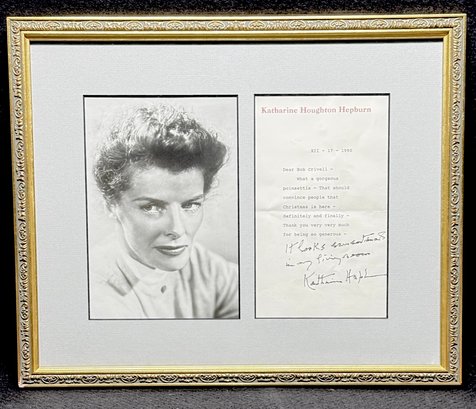 Katharine Houghton Hepburn
XII - 17 - 1990
Dear Bob Crivell -
What a gorgeous
poinsettia - That should
convince people that
Christmas is here -
definitely and finally -
Thank you very very much
for being so generous -
It looks
in my living room
Katharine Hepburn